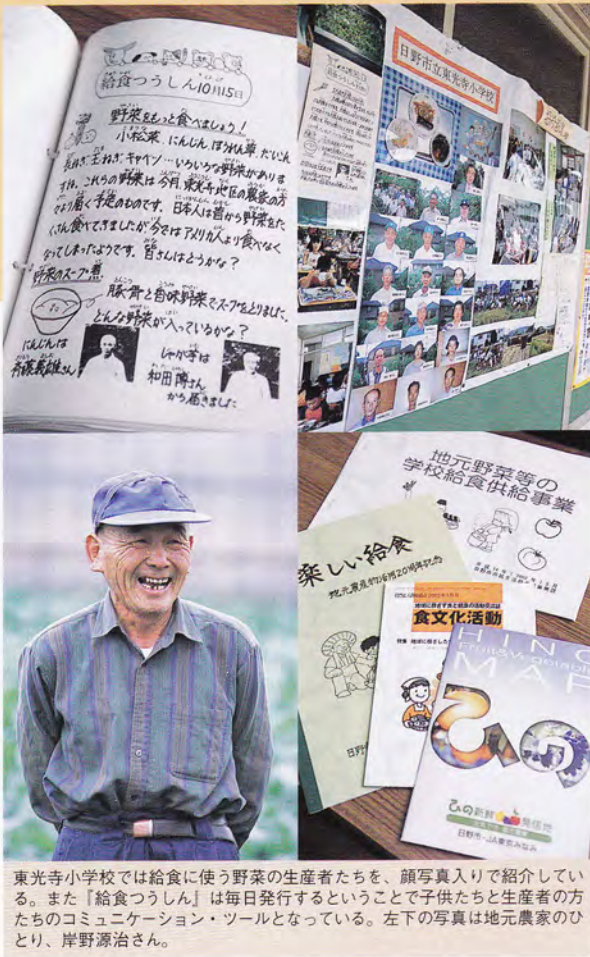 給食つうしん10月15日
野菜をもっと食べましょう!
小松菜、にんじん、ほうれん草、だいこん
長ねぎ、玉ねぎ、キャベツ…いろいろな野菜がありま
すね。これらの野菜は今月、東光寺地区の農家の方
々より届く予定のものです。日本人は昔から野菜をた
くさん食べてきましたが今ではアメリカ人より食べなく
なってしまったようです。皆さんはどうかな?
野菜のスープ煮
豚骨と香味野菜でスープをとりました。
どんな野菜が入っているかな?
にんじんは
斉藤義雄さん
じゃが芋は
和田博さん
から届きました
日野市立東光寺小学校
地元野菜等の
学校給食供給事業
楽しい給食
地元農産物活用20周年記念
日野
食文化活動
HINO
Fruit&Vegetable
MAP
ひの
ひの新鮮発信地
日野市・JA東京みなみ
東光寺小学校では給食に使う野菜の生産者たちを、顔写真入りで紹介してい
る。また『給食つうしん』は毎日発行するということで子供たちと生産者の方
たちのコミュニケーション・ツールとなっている。左下の写真は地元農家のひ
とり、岸野源治さん。